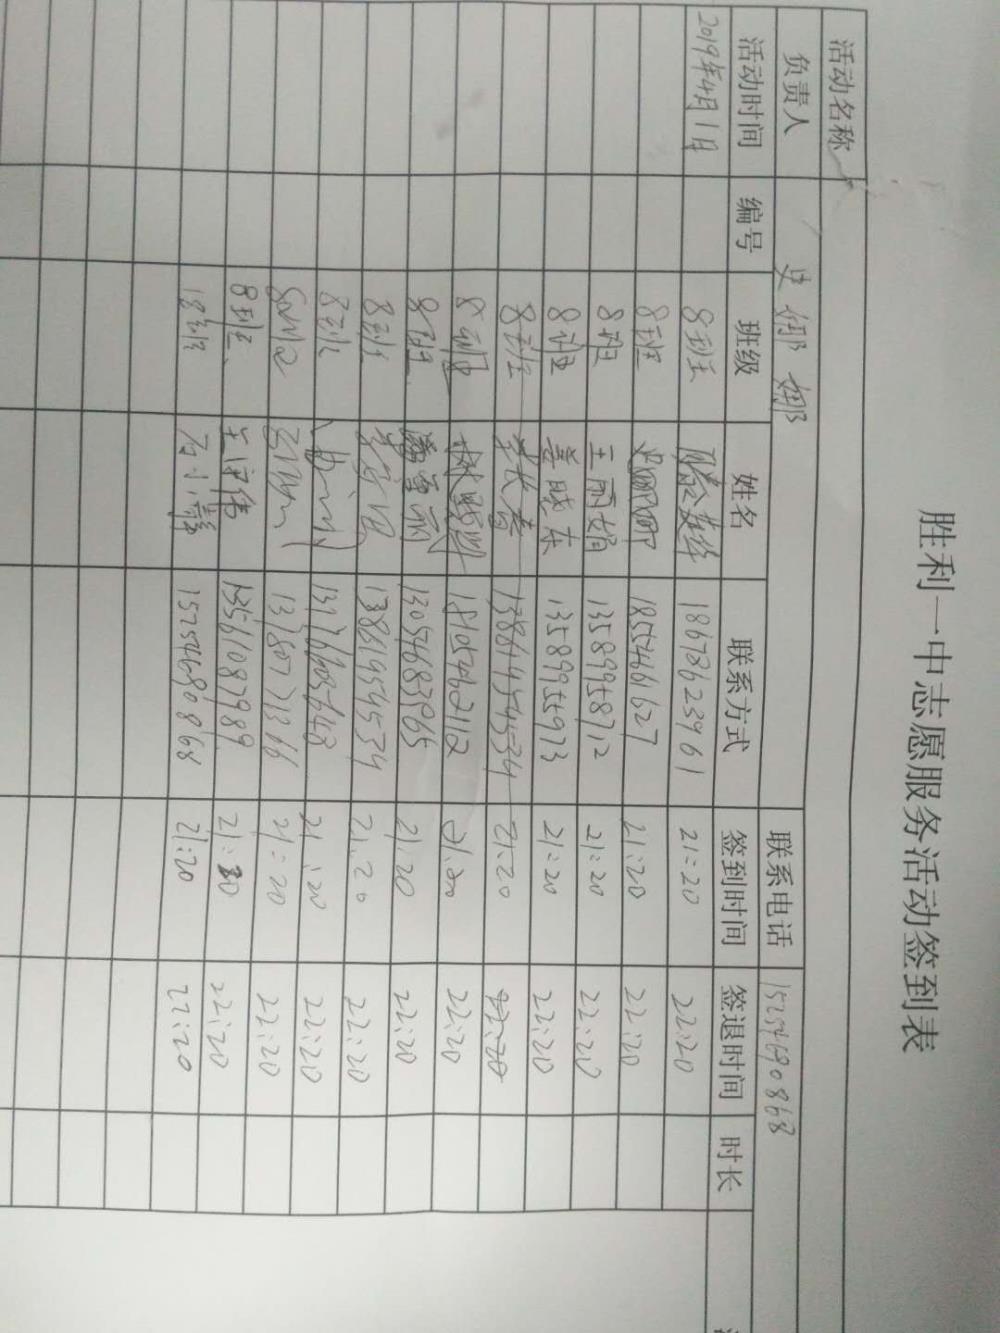 胜利一中志愿服务活动签到表
活动名称
负责人 史娜娜 联系电话 15254690868
活动时间 编号 班级 姓名 联系方式 签到时间 签退时间 时长
2019年4月1日 8班 18678623961 21:20 22:20
8班 史娜娜 18554661627 21:20 22:20
8班 王丽娟 13589958712 21:20 22:20
8班 姜晓东 13589955973 21:20 22:20
8班 李长春 13861454534 21:20 22:20
8班 18105462112 21:20 22:20
8班 13054683965 21:20 22:20
8班 21:20 22:20
8班 21:20 22:20
21:20 22:20
8班 王守伟 13561087989 22:20
15254690868 21:20 22:20